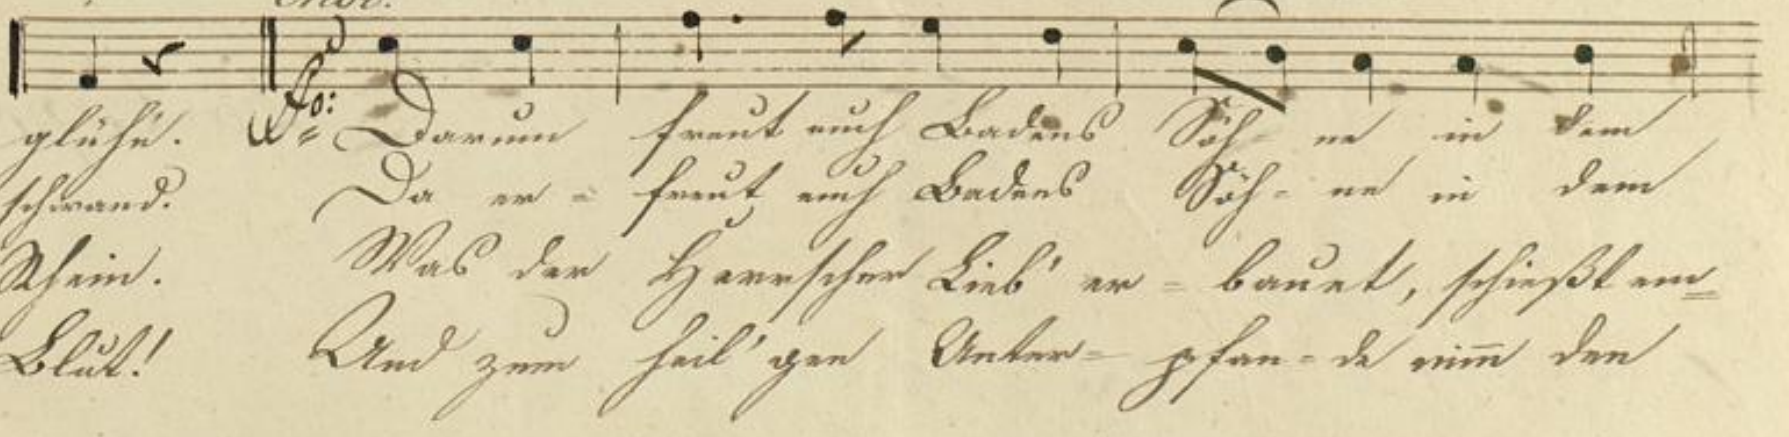 Chor.
fo:
glühn. Darum freut euch Badens Söh- ne in dem
schwand. Da er - freut euch Badens Söh - ne in dem
Rhein. Was der Herrscher Lieb' er - bauet, schießt em=
Blut! Und zum heil'gen Unter= pfan = de nim̄ den